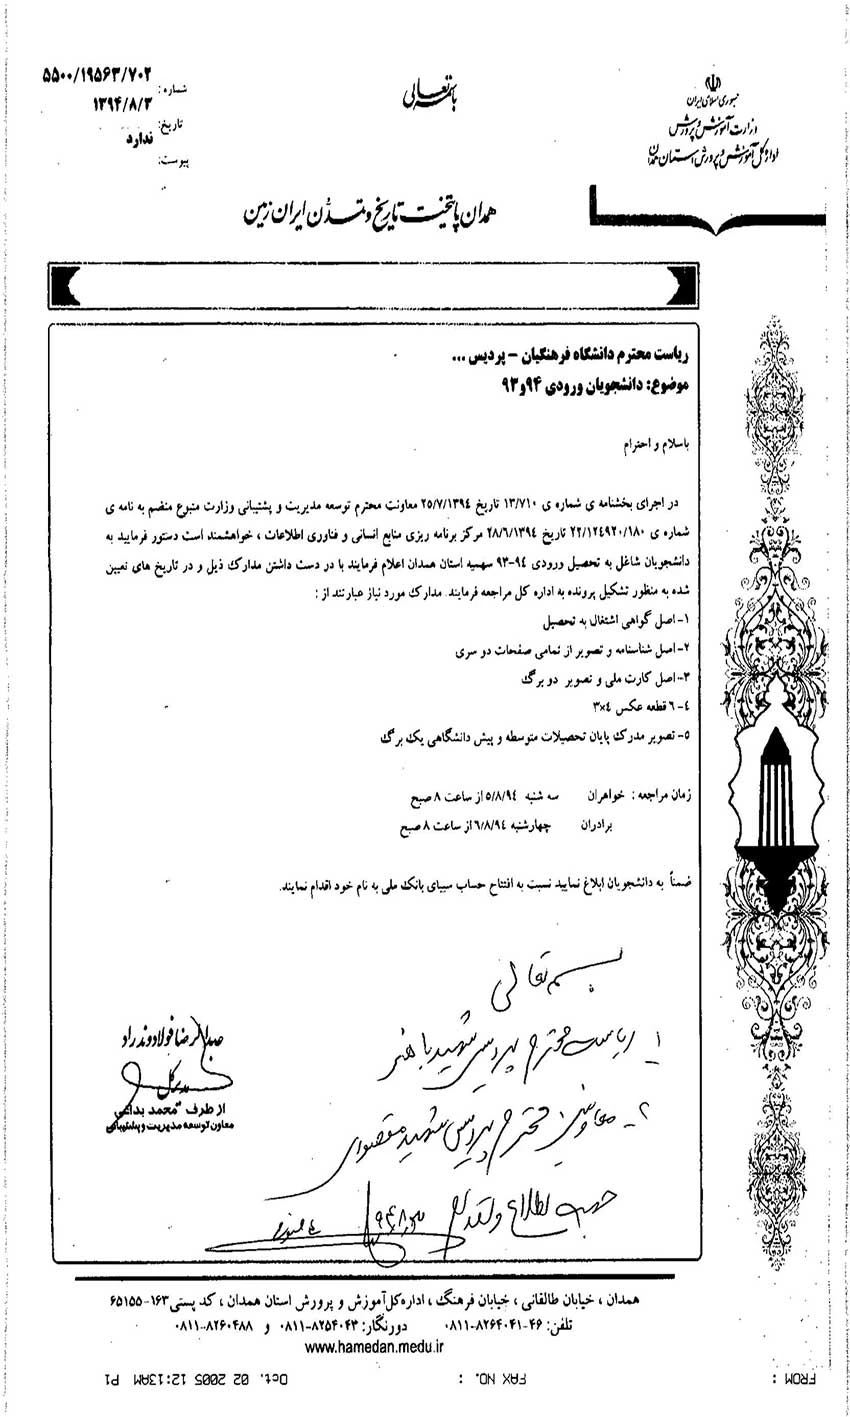 باسمه تعالی
جمهوری اسلامی ایران
وزارت آموزش و پرورش
اداره کل آموزش و پرورش استان همدان
شماره: ۵۵۰۰/۱۹۵۶۳/۷۰۲
تاریخ: ۱۳۹۴/۸/۳
پیوست: ندارد
همدان پایتخت تاریخ و تمدن ایران زمین
ریاست محترم دانشگاه فرهنگیان – پردیس ...
موضوع: دانشجویان ورودی ۹۴و۹۳
باسلام و احترام
در اجرای بخشنامه ی شماره ی ۱۳/۷۱۰ تاریخ ۲۵/۷/۱۳۹۴ معاونت محترم توسعه مدیریت و پشتیبانی وزارت متبوع منضم به نامه ی
شماره ی ۲۲/۱۲۴۹۲۰/۱۸۰ تاریخ ۲۸/۶/۱۳۹۴ مرکز برنامه ریزی منابع انسانی و فناوری اطلاعات ، خواهشمند است دستور فرمایید به
دانشجویان شاغل به تحصیل ورودی ۹۴-۹۳ سهمیه استان همدان اعلام فرمایند با در دست داشتن مدارک ذیل و در تاریخ های تعیین
شده به منظور تشکیل پرونده به اداره کل مراجعه فرمایند. مدارک مورد نیاز عبارتند از :
۱- اصل گواهی اشتغال به تحصیل
۲- اصل شناسنامه و تصویر از تمامی صفحات دو سری
۳- اصل کارت ملی و تصویر دو برگ
۴- ۶ قطعه عکس ۴×۳
۵- تصویر مدرک پایان تحصیلات متوسطه و پیش دانشگاهی یک برگ
زمان مراجعه : خواهران سه شنبه ۵/۸/۹۴ از ساعت ۸ صبح
برادران چهارشنبه ۶/۸/۹۴ از ساعت ۸ صبح
ضمناً به دانشجویان ابلاغ نمایید نسبت به افتتاح حساب سیبای بانک ملی به نام خود اقدام نمایند.
بسمه تعالی
۱- ریاست محترم پردیس شهید باهنر
۲- معاونین محترم پردیس شهید مقصودی
جهت اطلاع و اقدام
عبدالرضا فولادوند راد
مدیر کل
از طرف محمد بداغی
معاون توسعه مدیریت و پشتیبانی
همدان ، خیابان طالقانی ، خیابان فرهنگ ، اداره کل آموزش و پرورش استان همدان ، کد پستی ۱۶۳-۶۵۱۵۵
تلفن: ۴۶-۸۲۶۴۰۴۱-۰۸۱۱ دورنگار: ۸۲۵۴۰۴۳-۰۸۱۱ و ۸۲۶۰۴۸۸-۰۸۱۱
www.hamedan.medu.ir
FROM : FAX NO. : Oct. 02 2005 12:13AM P1